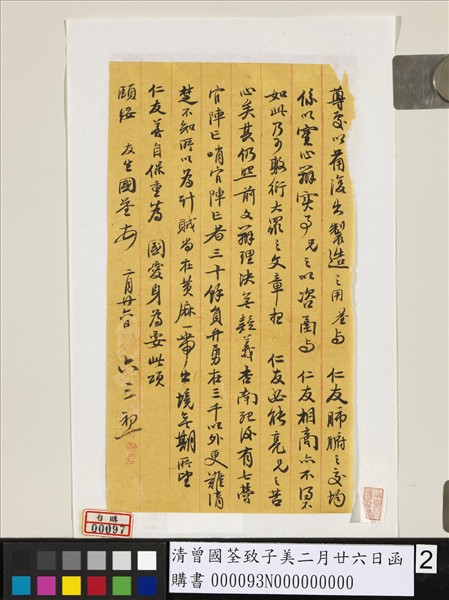 尊處以備後出製造之用荃與 仁友肺腑之交均
係以實心辦實事兄之以咨函與 仁友相商亦不得不
如此乃可敷衍大眾之文章想 仁友必能亮兄之苦
心矣其仍照前文辦理決無疑義杏南 有七營
官陣亡哨官陣亡者三十餘員弁勇在三千以外更難清
楚不知所以為計賊尚在黃麻一帶出境無期所望
仁友善自保重為 國愛身為要此頌
頤綏 友生國荃頓 二月廿六日
台購
00097
清曾國荃致子美二月廿六日函
購書 000093N000000000
2